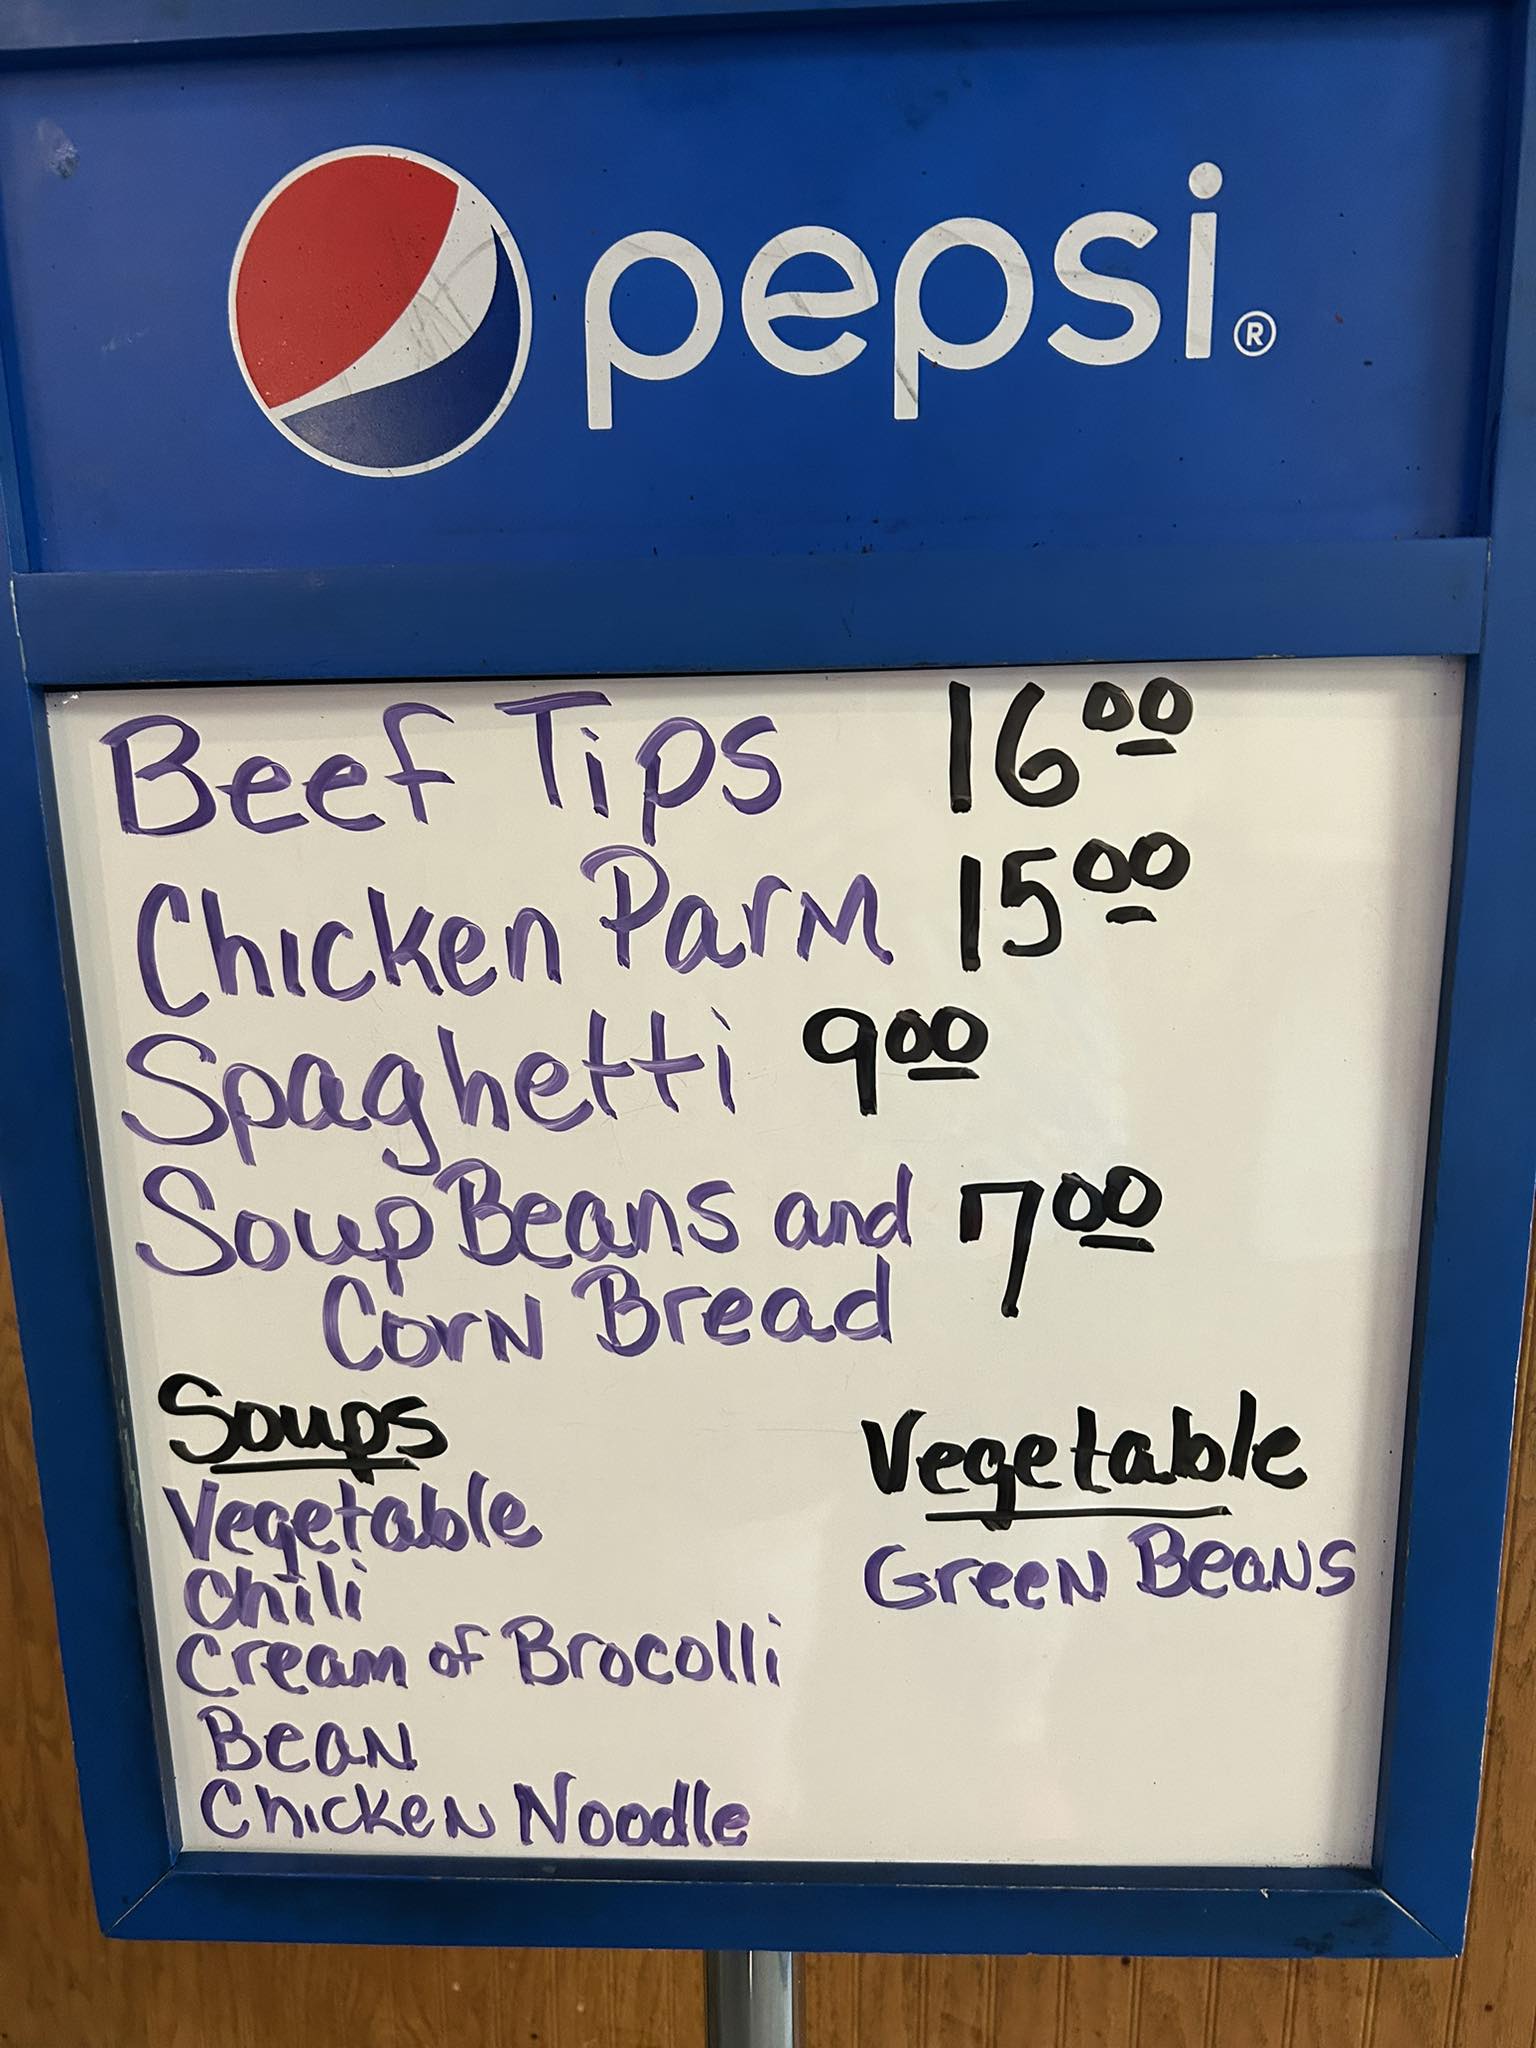 pepsi®
Beef Tips 16⁰⁰
Chicken Parm 15⁰⁰
Spaghetti 9⁰⁰
Soup Beans and 7⁰⁰
Corn Bread
Soups
Vegetable
Chili
Cream of Brocolli
Bean
Chicken Noodle
Vegetable
Green Beans